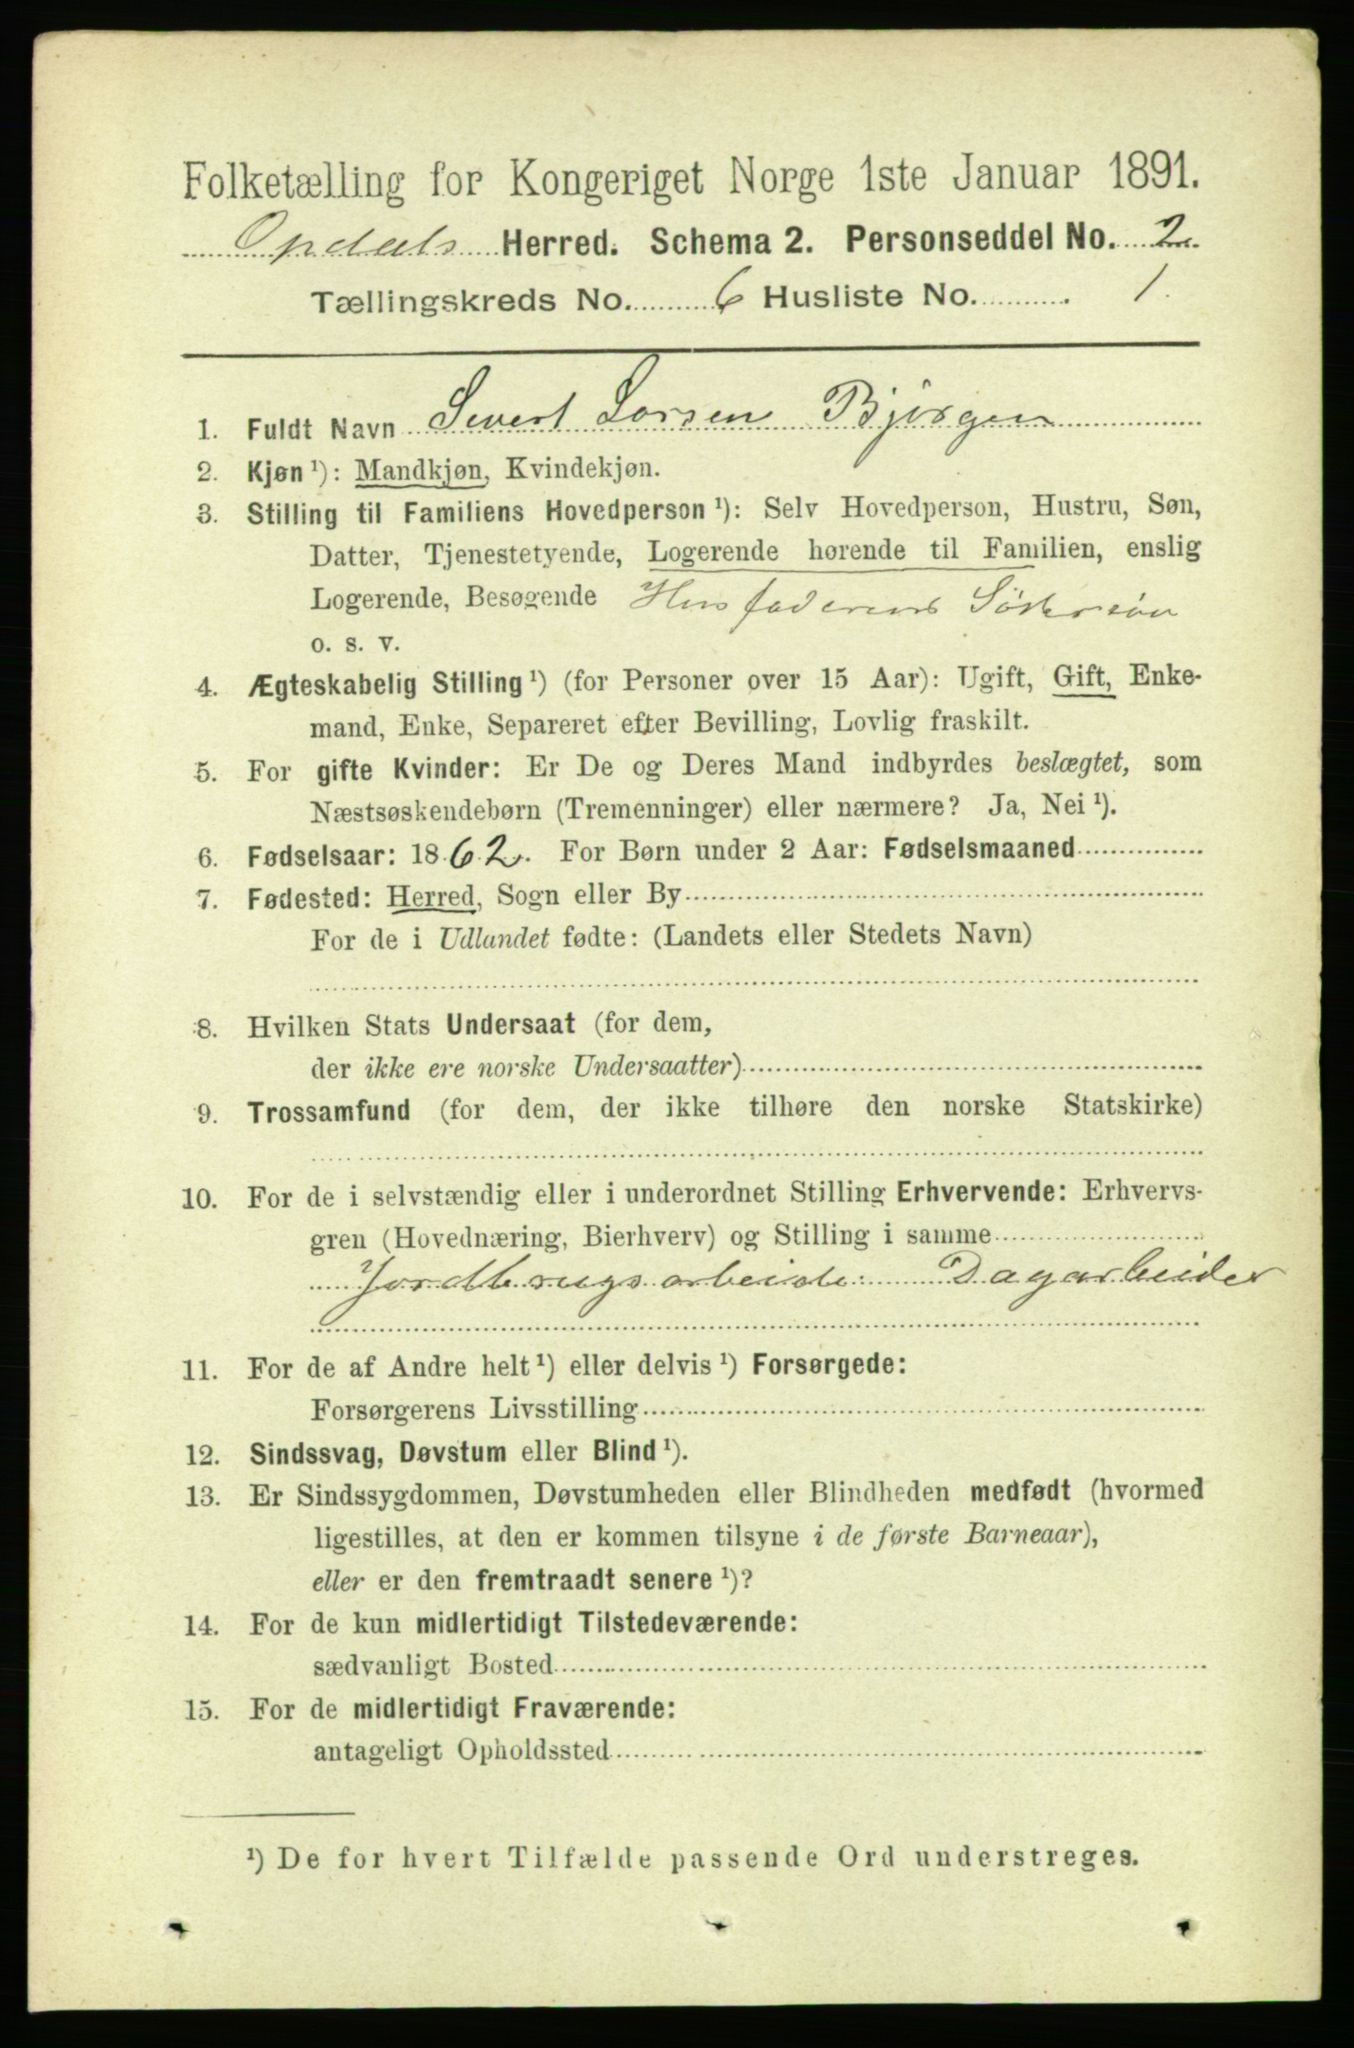 Folketælling for Kongeriget Norge 1ste Januar 1891.
Opdals Herred. Schema 2. Personseddel No. 2
Tællingskreds No. 6 Husliste No. 1.
1. Fuldt Navn Sivert Larsen Bjørgen
2. Kjøn ¹): Mandkjøn, Kvindekjøn.
3. Stilling til Familiens Hovedperson ¹): Selv Hovedperson, Hustru, Søn,
Datter, Tjenestetyende, Logerende hørende til Familien, enslig
Logerende, Besøgende Husfaderens Søstersøn
o. s. v.
4. Ægteskabelig Stilling ¹) (for Personer over 15 Aar): Ugift, Gift, Enke-
mand, Enke, Separeret efter Bevilling, Lovlig fraskilt.
5. For gifte Kvinder: Er De og Deres Mand indbyrdes beslægtet, som
Næstsøskendebørn (Tremenninger) eller nærmere? Ja, Nei ¹).
6. Fødselsaar: 1862. For Børn under 2 Aar: Fødselsmaaned
7. Fødested: Herred, Sogn eller By
For de i Udlandet fødte: (Landets eller Stedets Navn)
8. Hvilken Stats Undersaat (for dem,
der ikke ere norske Undersaatter)
9. Trossamfund (for dem, der ikke tilhøre den norske Statskirke)
10. For de i selvstændig eller i underordnet Stilling Erhvervende: Erhvervs-
gren (Hovednæring, Bierhverv) og Stilling i samme
Jordbrugsarbeide: Dagarbeider
11. For de af Andre helt ¹) eller delvis ¹) Forsørgede:
Forsørgerens Livsstilling
12. Sindssvag, Døvstum eller Blind ¹).
13. Er Sindssygdommen, Døvstumheden eller Blindheden medfødt (hvormed
ligestilles, at den er kommen tilsyne i de første Barneaar),
eller er den fremtraadt senere ¹)?
14. For de kun midlertidigt Tilstedeværende:
sædvanligt Bosted
15. For de midlertidigt Fraværende:
antageligt Opholdssted
¹) De for hvert Tilfælde passende Ord understreges.